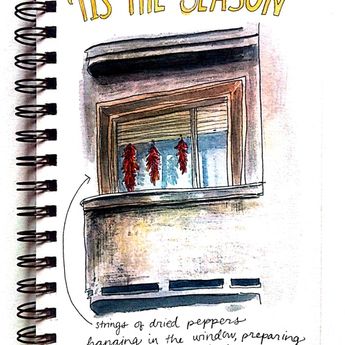 'TIS THE SEASON
strings of dried peppers
hanging in the window, preparing